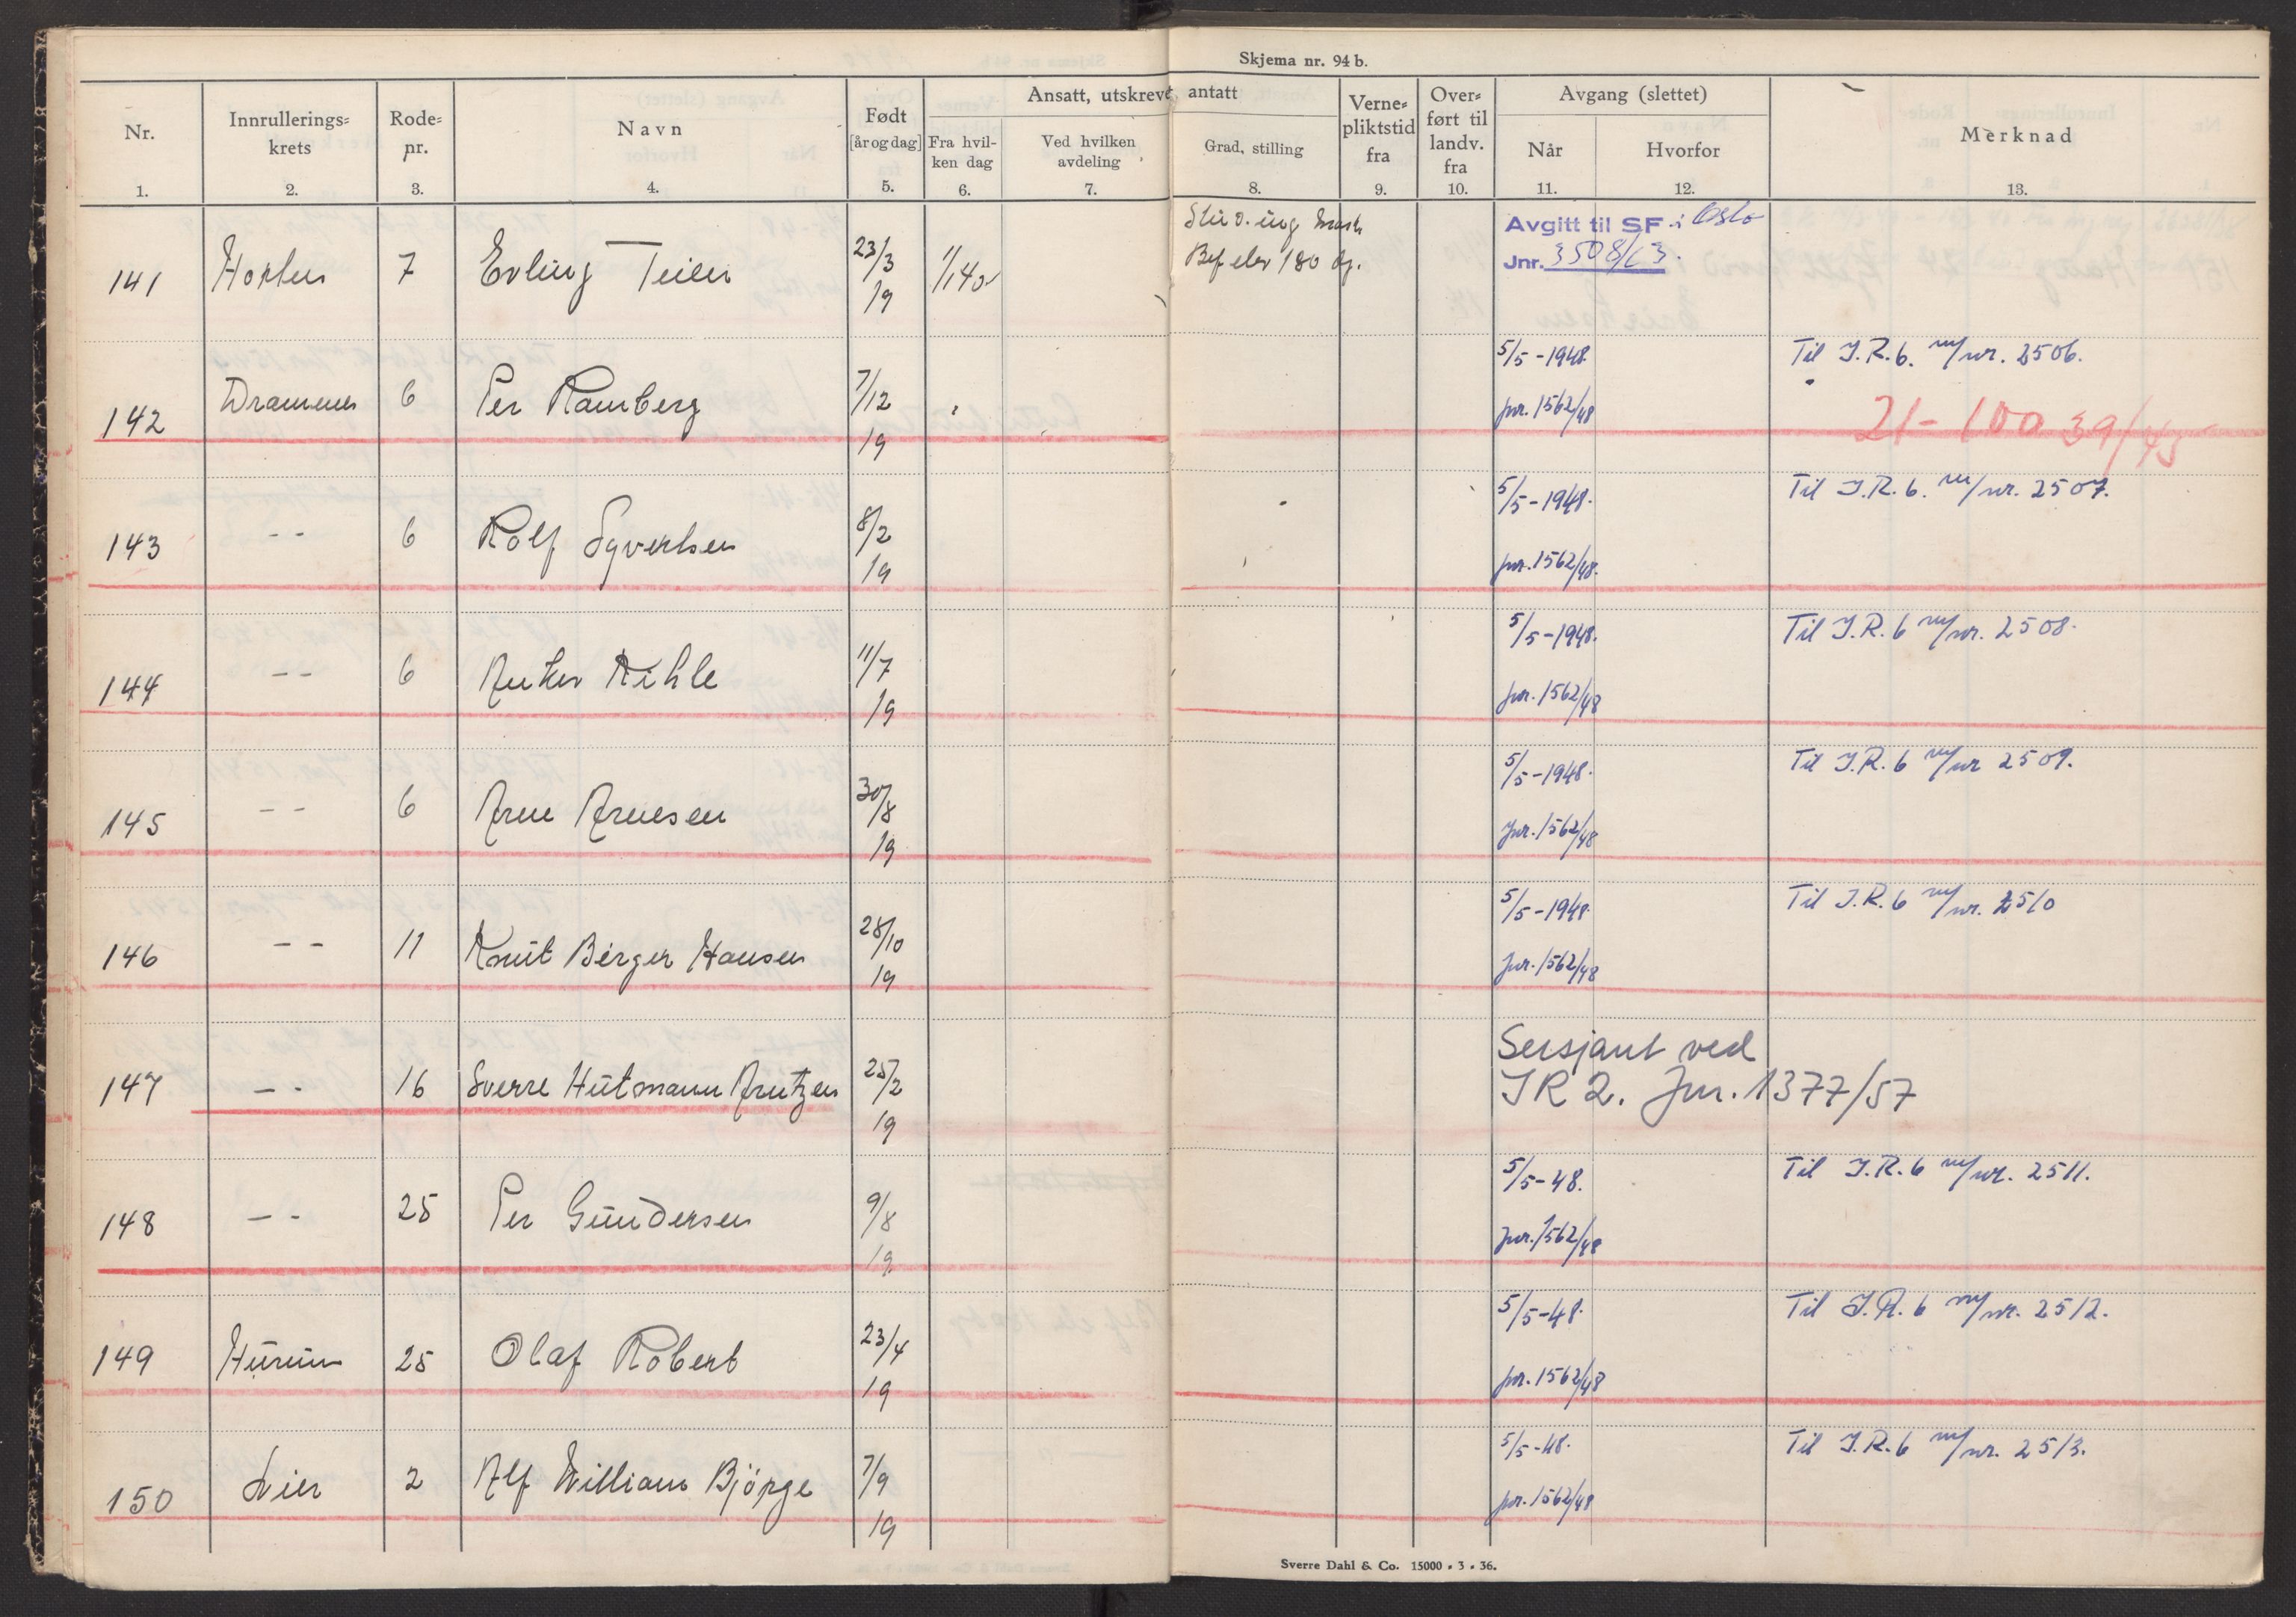 Skjema nr. 94 b.
Nr. Innrullerings= krets Rode= nr. Navn Født [år og dag] Ansatt, utskrevet, antatt Verne= pliktstid fra Over= ført til landv. fra Avgang (slettet) Merknad
Fra hvil- ken dag Ved hvilken avdeling Grad, stilling Når Hvorfor
1. 2. 3. 4. 5. 6. 7. 8. 9. 10. 11. 12. 13.
141 Horten 7 Erling Teien 23/3 19 1/1 40 Stud. ing.
Bef elev 180 dg. Avgitt til SF i Oslo
Jnr. 3508/63.
142 Drammen 6 Per Ramberg 7/12 19 5/5-1948 Til I.R. 6. m/nr. 2506.
jnr. 1562/48 21-100 39/45
143 -- 6 Rolf Syvertsen 8/2 19 5/5-1948. Til I.R. 6. m/nr. 2507.
jnr. 1562/48.
144 -- 6 Anker Kihle 11/7 19 5/5-1948. Til I.R. 6 m/nr. 2508.
jnr. 1562/48
145 -- 6 Arne Arnesen 30/8 19 5/5-1948. Til I.R. 6 m/nr 2509.
Jnr. 1562/48
146 -- 11 Knut Birger Hansen 28/10 19 5/5-1948. Til I.R. 6 m/nr. 2510
Jnr. 1562/48
147 -- 16 Sverre Hutmann Arntzen 25/2 19 Sersjant ved
IR 2. Jnr. 1377/57
148 -- 25 Per Gundersen 9/8 19 5/5-48. Til I.R. 6 m/nr. 2511.
Jnr. 1562/48
149 Hurum 25 Olaf Robert 23/4 19 5/5-48. Til I.R. 6 m/nr. 2512.
jnr. 1562/48
150 Lier 2 Alf William Bjørge 7/9 19 5/5-48. Til I.R. 6 m/nr. 2513.
jnr. 1562/48
Sverre Dahl & Co. 15000 . 3 . 36.